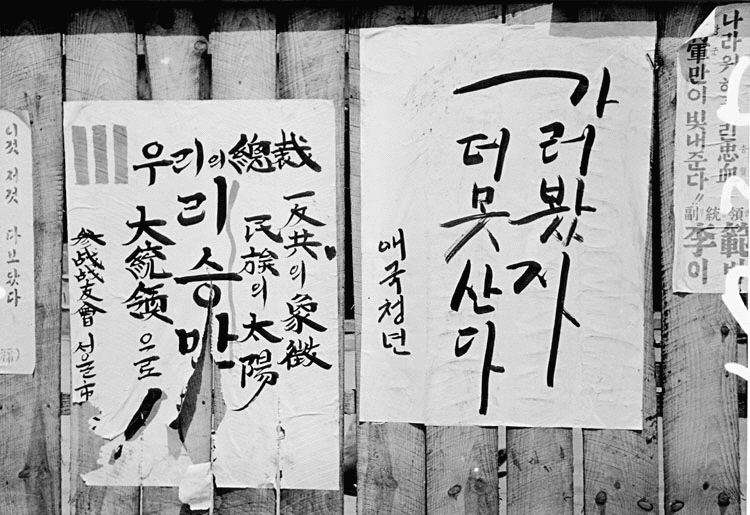 이것 저것 다 보았다
우리의 總裁
一反共의 象徵
民族의 太陽
리승만
大統領으로
參战战友會 서울市
가러봤자
더 못산다
애국청년
나라위
린忠血
만이 빛내준다!!
副統領
範
李